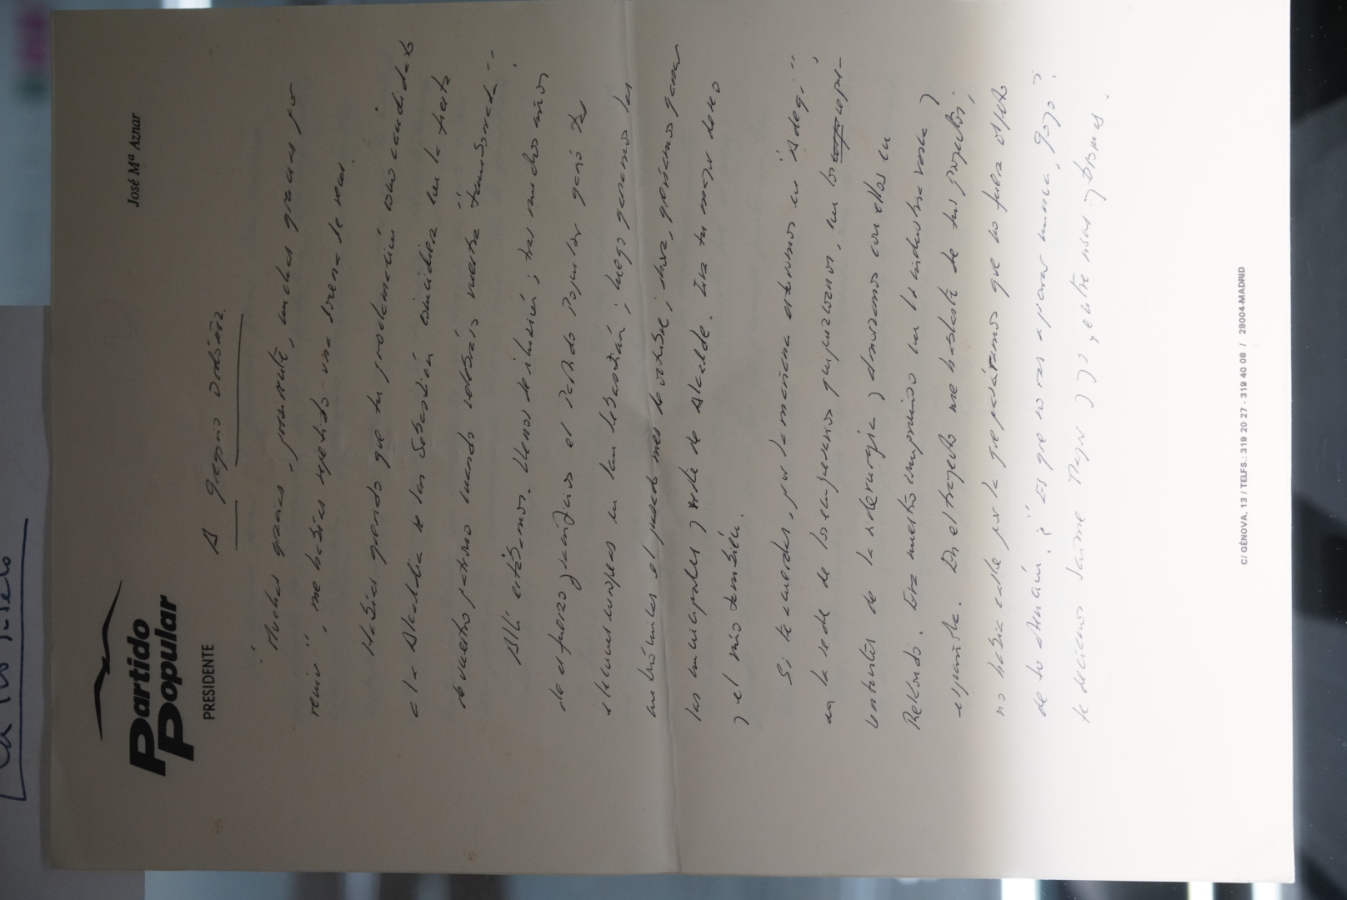 Partido
Popular
PRESIDENTE
José Mª Aznar
A Gregorio Ordóñez.
"Muchas gracias, presidente, muchas gracias por
venir", me habías repetido una docena de veces.
Habías querido que tu proclamación como candidato
a la Alcaldía de San Sebastián coincidiera con la fiesta
de vuestro patrono cuando celebráis vuestra "tamborrada".
Allí estábamos. Llenos de ilusión; tras muchos años
de esfuerzo y sacrificio el Partido Popular ganó las
elecciones europeas en San Sebastián; luego ganamos las
autonómicas el pasado mes de octubre; ahora, queríamos ganar
las municipales y serías Alcalde. Era tu mayor deseo
y el mío también.
Si te acuerdas, por la mañana estuvimos en "Adegi",
en la sede de los empresarios guipuzcoanos, con los repre-
sentantes de la siderurgia y almorzamos con ellos en
Rekondo. Era nuestro compromiso con la industria vasca y
española. En el trayecto me hablaste de tus proyectos;
no había calle por la que pasáramos que no fuera objeto
de tu atención. ¿Es que no vas a parar nunca, Goyo?
te decíamos Jaime Mayor y yo, entre risas y bromas.
C/ GÉNOVA, 13 / TELFS.: 319 20 27 - 319 40 08 / 28004-MADRID